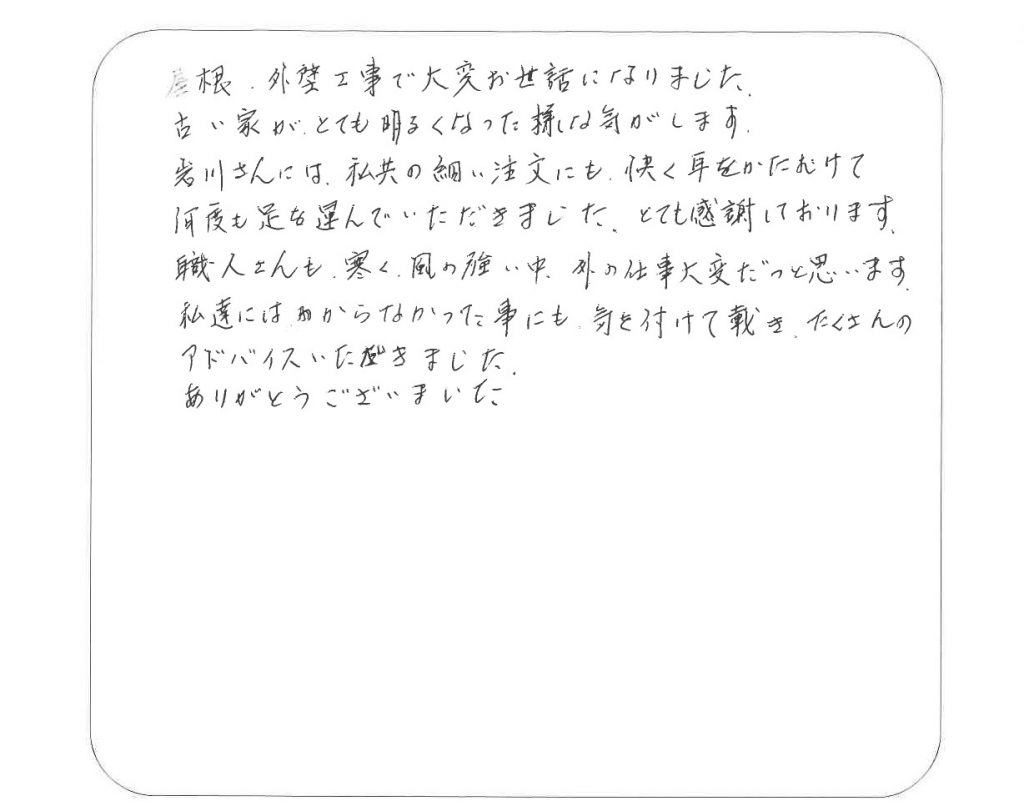 屋根、外壁工事で大変お世話になりました。
古い家が、とても明るくなった様な気がします。
岩川さんには、私共の細い注文にも、快く耳をかたむけて
何度も足を運んでいただきました。とても感謝しております。
職人さんも、寒く、風の強い中、外の仕事大変だつと思います。
私達にはわからなかった事にも、気を付けて戴き、たくさんの
アドバイスいただきました。
ありがとうございまいた